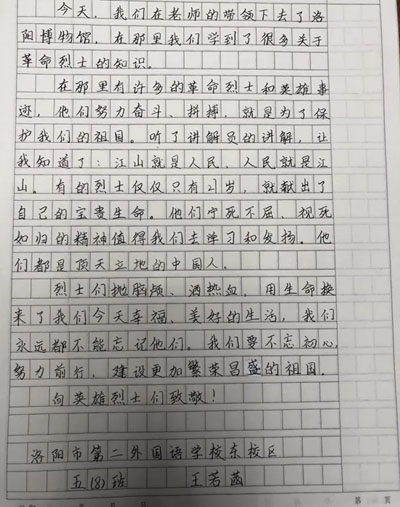 今天，我们在老师的带领下去了洛
阳博物馆，在那里我们学到了很多关于
革命烈士的知识。
在那里有许多的革命烈士和英雄事
迹，他们努力奋斗、拼搏，就是为了保
护我们的祖国。听了讲解员的讲解，让
我知道了：江山就是人民，人民就是江
山。有的烈士仅仅只有21岁，就献出了
自己的宝贵生命。他们宁死不屈、视死
如归的精神值得我们去学习和发扬。他
们都是顶天立地的中国人。
烈士们抛头颅、洒热血，用生命换
来了我们今天幸福、美好的生活，我们
永远都不能忘记他们。我们要不忘初心，
努力前行，建设更加繁荣昌盛的祖国。
向英雄烈士们致敬！
洛阳市第二外国语学校东校区
五（8）班 王若菡
月 日 第 页